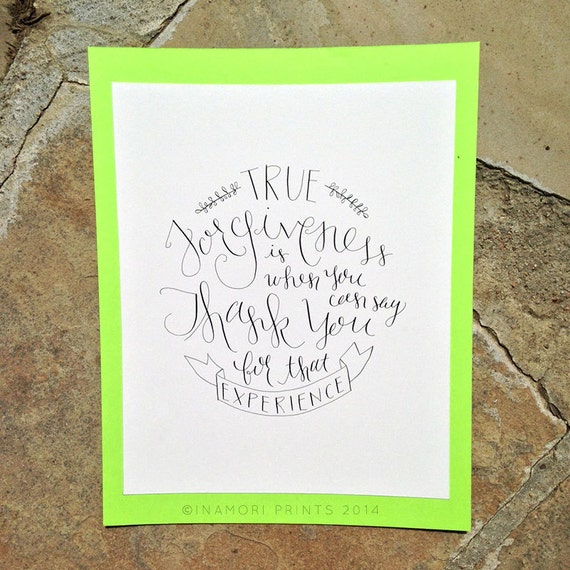 TRUE
Forgiveness
is
when you
can say
Thank You
for that
EXPERIENCE
©INAMORI PRINTS 2014